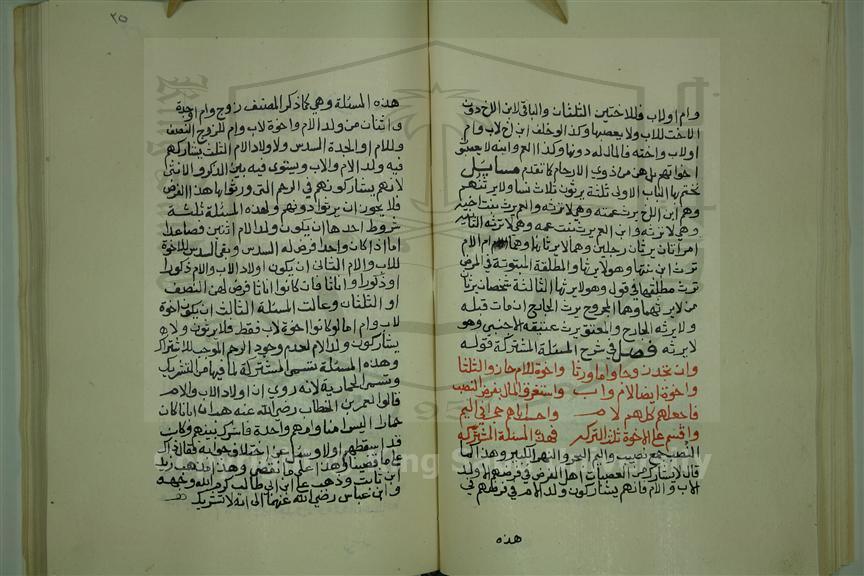 وام اولاب فللاختين الثلثان والباقي لابن الاخ دون
الاخت للاب ولا يعصبها وكذ الوخلف ابن اخ لاب وام
او لاب واخته فالمال له دونها وكذ االعم وابنه لا يعصبون
اخواتهم بل هن من ذوي الارحام كما تقدم مسايل
نختم بها الباب الاولى ثلثة يرثون ثلاث نسا ولا يرثنهم
وهم ابن الاخ يرث عمته وهي لا ترثه والعم يرث بنت اخيه
وهي لا ترثه وابن العم يرث بنت عمه وهي لا ترثه الثانيه
امراتان يرثان رجلين وهما لا يرثانهما وهما ام الام
ترث ابن بنتها وهو لا يرثها والمطلقة المبتوتة في المرض
ترث مطلقها في قول وهو لا يرثها الثالثة شخصان يرثان
من لا يرثهما وهما المجروح يرث الجارح ان مات قبله
ولا يرثه الجارح والمعتق يرث عتيقه الاجنبي وهو
لا يرثه فصل في شرح المسئلة المشتركة قوله
وان تجد زوجا واما ورثا واخوة للام حازوا الثلثا
واخوة ايضا لام واب واستغرقوا المال بفرض النصب
فاجعلهم كلهم لام واجعل اباهم حجرا في اليم
واقسم على الاخوة ثلث التركه فهذه المسئلة المشتركه
النصب جمع نصيب واليم البحر والنهر الكبير وهذا كما
قال لا يشارك العصبات اهل الفرض في فرضهم الا ولد
الاب والام فانهم يشاركون ولد الام في فرضهم في
هذه
٢٥
هذه المسئلة وهي كما ذكر المصنف زوج وام اوجدة
واثنان من ولد الام واخوة لاب وام للزوج النصف
وللام او الجدة السدس ولاولاد الام الثلث يشاركهم
فيه ولد الام والاب ويستوي فيه بين الذكر والانثى
لانهم يشاركونهم في الرحم التي ورثوا بها هذا الفرض
فلا يجوز ان يرثوا دونهم ولهذه المسئلة ثلثة
شروط احدها ان يكون ولد الام اثنين فصاعدا
اما اذا كان واحدا فرض له السدس وبقي السدس للاخوة
للاب والام الثاني ان يكون اولاد الاب والام ذكورا
او ذكورا واناثا فان كانوا اناثا فرض لهن النصف
او الثلثان وعالت المسئلة الثالث ان يكون اخوة
لاب وام اما لو كانوا اخوة لاب فقط فلا يرثون ولا
يشاركون ولد الام لعدم وجود الرحم الموجب للاشتراك
وهذه المسئلة تسمى المشتركة لما فيها من التشريك
وتسمى الحمارية لانه روي ان اولاد الاب والام
قالوا لعمر بن الخطاب رضي الله عنه هب ان ابانا كان
حمارا اليس امنا وامهم واحدة فاشرك بينهم وكان
قد اسقطهم اولا وسئل عن اختلاف جوابه فقال ذاك
على ما قضينا وهذا على ما نقضي وهذا مذهب زيد
ابن ثابت وذهب علي ابن ابي طالب كرم الله وجهه
وابن عباس رضي الله عنهما الى انه لا تشريك